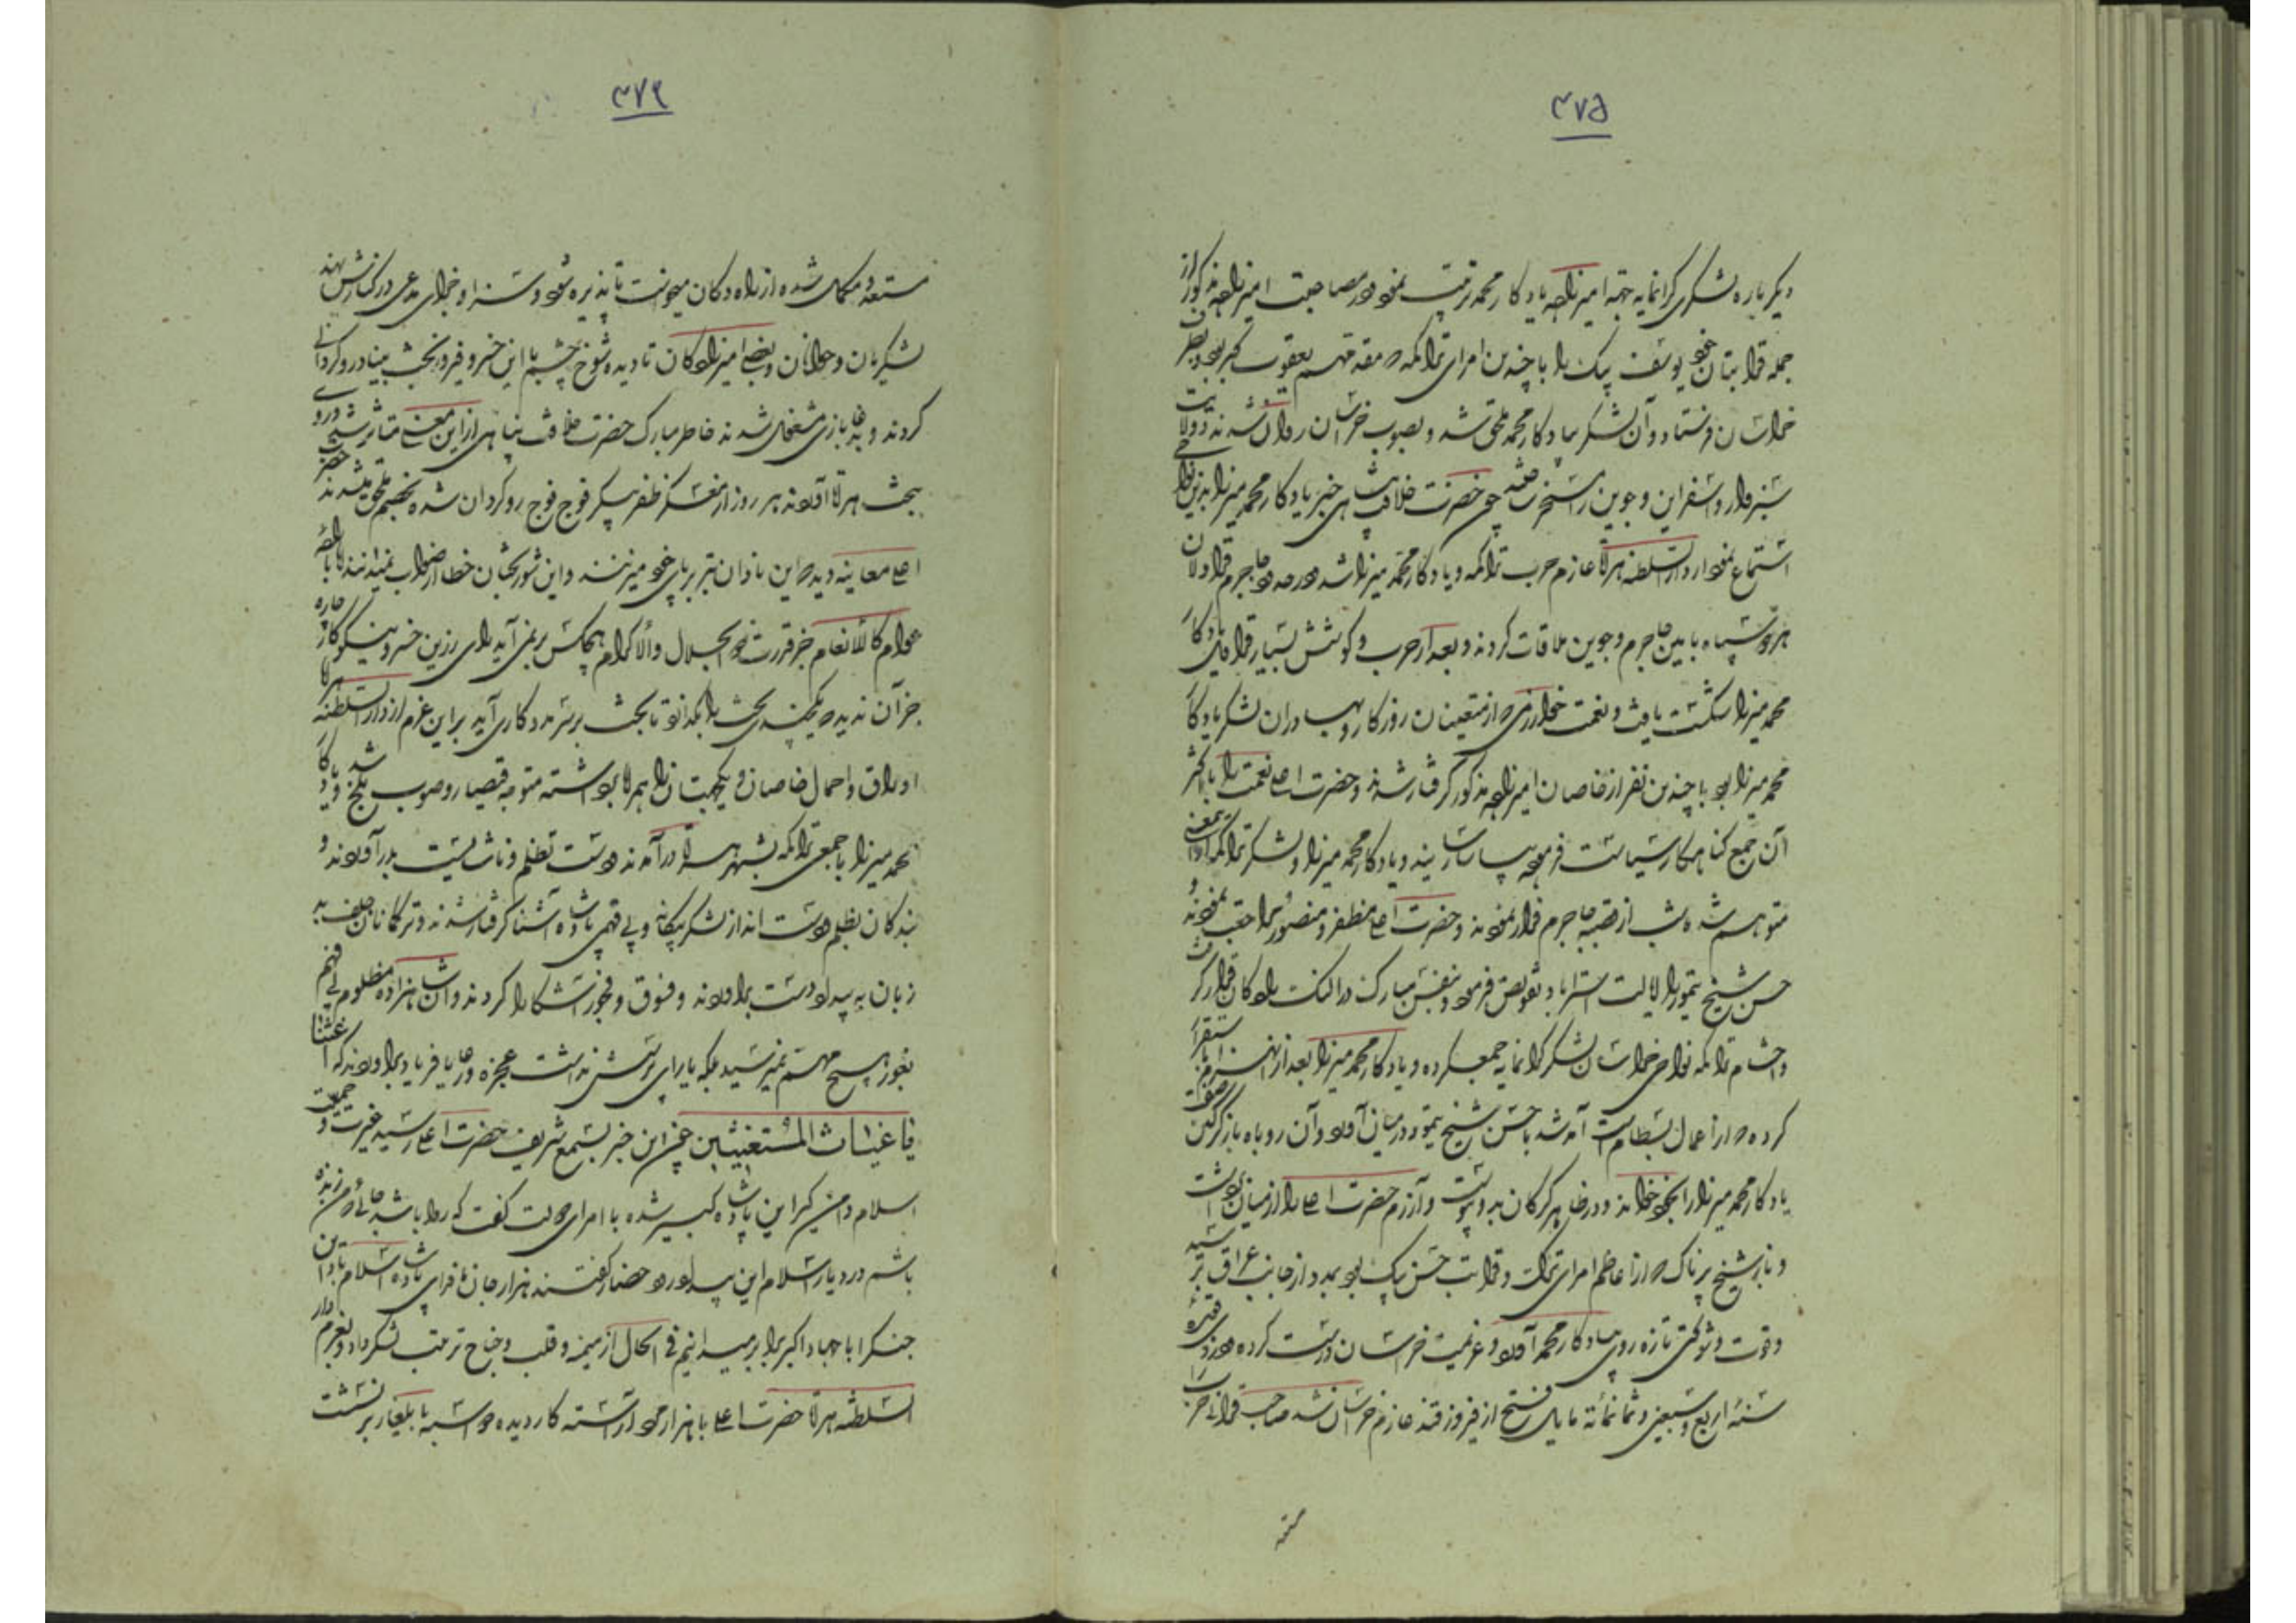 ۳۷۵
دیگر باره لشکری گرانمایه جهة امیرزاده یادکار محمد ترتیب نمود و در مصاحبت امیرزاده مذکور از
جمله قرابتان خود یوسف بیک را با چندین امرای تراکمه که مقدمهم یعقوب بود بطرف
خراسان فرستاد و آن لشکر بیادکار محمد ملحق شد و بصوب خراسان روان شدند و ولایت
سبزوار و اسفراین و جوین را مسخر ساخته چون حضرت خلافت پناهی خبر یادکار محمد میرزا بدین نواحی
استماع نمود از دارالسلطنه هراة عازم حرب تراکمه و یادکار محمد میرزا شد در حدود جاجرم قراولان
هر دو سپاه ما بین جاجرم و جوین ملاقات کردند و بعد از حرب و کوشش بسیار قراولان یادکار
محمد میرزا شکست یافت و نعمت خوارزمی که از متعینان روزکار و بهادران لشکر یادکار
محمد میرزا بود با چندین نفر از خاصان امیرزاده مذکور گرفتار شدند و حضرت اعلی نعمت را با اکثر
آن جمع کناهکار سیاست فرمود بیاسا رسانیدند و یادکار محمد میرزا و لشکر تراکمه ازین معنی
متوهم شده شب از قصبه جاجرم فرار نمودند و حضرت اعلی مظفر و منصور مراجعت نمودند و
حسن شیخ تیمور را ایالت استراباد تفویض فرمود و بنفس مبارک در النک رادکان قرار گرفت
و احشام تراکمه نواحی خراسان لشکر گرانمایه جمع کرده و یادکار محمد میرزا بعد از انهزام استقرا
کرده که از اعمال بسطام است آمد شد با حسن شیخ تیمور در میان آورد و آن روباه باز گرگین صفت
یادکار محمد میرزا را بخود خواند و در ظاهر گرگان بدو پیوست و آزرم حضرت اعلی را از میان برداشت
و نابر شیخ پرناک که از اعاظم امرای تراکمه و قرابت حسن بیک بود بمدد از جانب عراق رسید
و قوت و شوکتی تازه روی بیادکار محمد آورد و عزیمت خراسان درست کرده در ذی قعده
سنهٔ اربع و سبعین و ثمانمائه مایل فتح از فیروز قند عازم خراسان شد صاحب قرانی حرب را
۳۷۶
مستعد و متکمل شده از رادکان میخواست تا پذیره شود و سزا و جزای مدعی در کنارش نهد
لشکریان و جوانان و بعضی امیرزادکان نادیده شوخ چشم با این خسرو فیروز بخت بنیاد روگردانی
کردند و بدغا بازی مشغول شدند خاطر مبارک حضرت خلافت پناهی از این معنی متاثر شد و روی
بجانب هراة آوردند هر روز از معسکر ظفر پیکر فوج فوج روگردان شده بخصم ملحق میشدند حضرت
اعلی معاینه دید که این نادان تبر بر پای خود میزنند و این شوربختان خطا از صواب نمیدانند
عوام کالانعام جز قدرت ذو الجلال والاکرام هیچکس بر نمی آید رای رزین خسرو نیکو کار چاره
جز آن ندید که یکچندی تخت را بگذارد تا بخت برسر مددکاری آید بر این عزم از دارالسلطنه هراة
اوراق و احمال خاصان و یکجهتان را همراه برداشته متوجه قیصار و صوب بلخ شد و یادکار
محمد میرزا با جمعی تراکمه بشهر هراة در آمدند دست تظلم و ناشایست بدر آوردند و
بندکان بظلم دست انداز لشکر بیگانه و بی فهمی پادشاه آشنا گرفتار شدند و ترکمانان جلف بد
زبان به بیداد دست برآوردند و فسوق و فجور آشکارا کردند و آن شاهزاده مظلوم بی فهم
بغور هیچ مهم نمیرسید بلکه یارای پرسش نداشت عجزه و رعایا فریاد برآوردند که اغثنا
یا غیاث المستغیثین چون این خبر بسمع شریف حضرت اعلی رسید غیرت و حمیت
اسلام دامن گیر این پادشاه کبیر شده با امرای دولت گفت که روا باشد که من زنده
باشم در دیار اسلام این بیداد رود حضار گفتند هزار جان ما فدای پادشاه اسلام باد این
جنک را با جهاد اکبر برابر میدانیم فی الحال از میمنه و قلب و جناح ترتیب لشکر داد و بعزم دار
السلطنه هراة حضرت اعلی با هزار مرد آراسته کار دیده دو اسبه بایلغار بر نشست